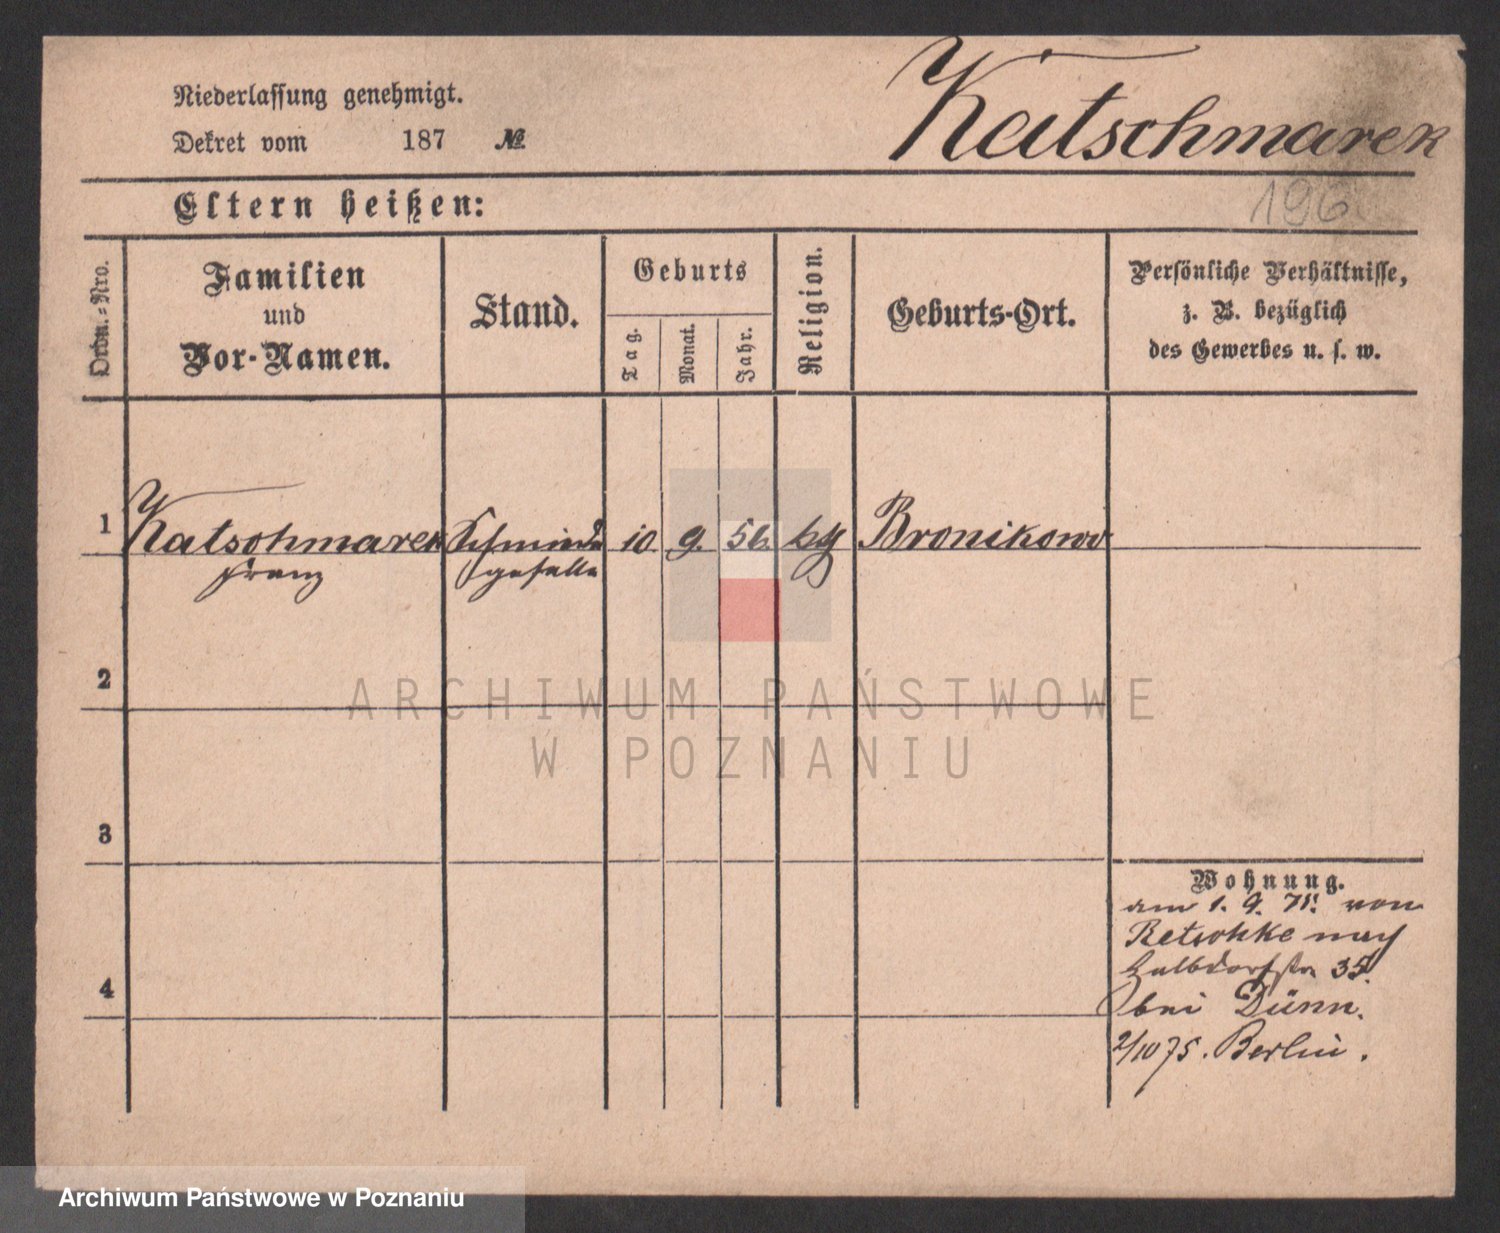 Niederlassung genehmigt.
Dekret vom 187 №
Katschmarek
196
Eltern heißen:
Ordn.-Nro.
Familien
und
Vor-Namen.
Stand.
Geburts
Tag.
Monat.
Jahr.
Religion.
Geburts-Ort.
Persönliche Verhältnisse,
z. B. bezüglich
des Gewerbes u. s. w.
1 Katschmarek Schmiede 10. 9. 56. kth Bronikowo
Franz geselle
2
3
4
Wohnung.
am 1. 9. 75. von
Retschke nach
Halbdorfstr 35.
bei Dünn.
2/10 75. Berlin.
ARCHIWUM PAŃSTWOWE
W POZNANIU
Archiwum Państwowe w Poznaniu